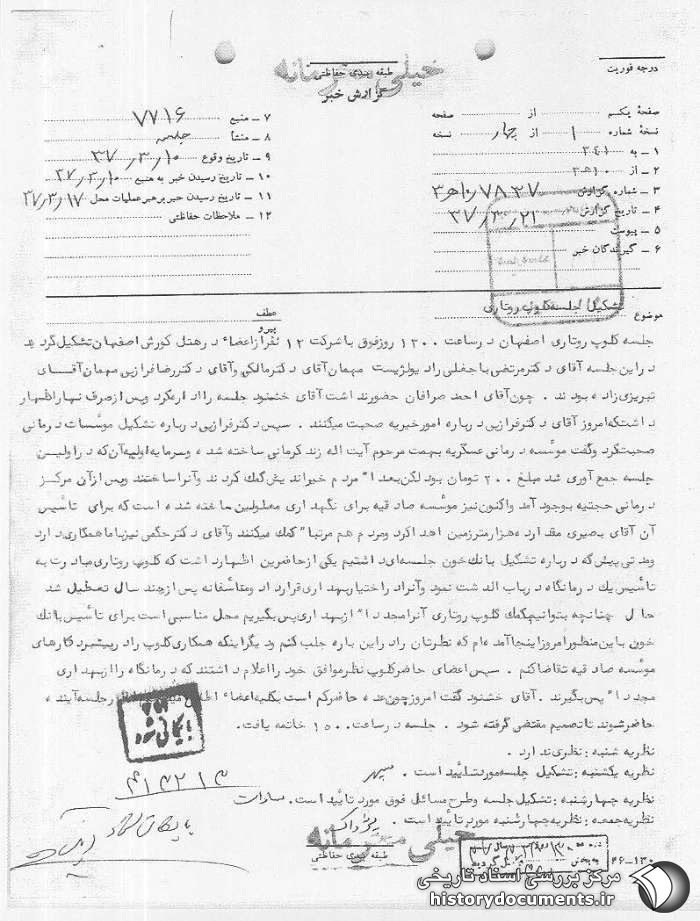 خیلی محرمانه
طبقه بندی حفاظتی
گزارش خبر
درجه فوریت
صفحهٔ یکم از صفحه
نسخهٔ شماره ۱ از چهار نسخه
۱ ـ به ۳۴۱
۲ ـ از ۱۰هـ۳
۳ ـ شماره گزارش ۳هـ۱۰/۷۸۲۷
۴ ـ تاریخ گزارش ۳۷/۳/۲۱
۵ ـ پیوست
۶ ـ گیرندگان خبر
۷ ـ منبع ۷۷۱۶
۸ ـ منشأ جلسه
۹ ـ تاریخ وقوع ۳۷/۳/۱۰
۱۰ ـ تاریخ رسیدن خبر به منبع ۳۷/۳/۱۰
۱۱ ـ تاریخ رسیدن خبر برهبر عملیات محل ۳۷/۳/۱۷
۱۲ ـ ملاحظات حفاظتی
موضوع تشکیل جلسه کلوپ روتاری
عطف
پیرو
جلسه کلوپ روتاری اصفهان در ساعت ۱۳۰۰ روز فوق با شرکت ۱۲ نفر از اعضاء در هتل کورش اصفهان تشکیل گردید
در این جلسه آقای دکتر مرتضی باجغلی رادیولژیست میهمان آقای دکتر مالکی و آقای دکتر رضا فرازیی مهمان آقای
تبریزی زاده بودند . چون آقای احمد صرافان حضور نداشت آقای خشنود جلسه را اداره کرد و پس از صرف نهار اظهار
داشت که امروز آقای دکتر فرازیی درباره امور خیریه صحبت میکنند . سپس دکتر فرازیی درباره تشکیل موسسات درمانی
صحبت کرد و گفت موسسه درمانی عسگریه بهمت مرحوم آیت اله زند کرمانی ساخته شده و سرمایه اولیه آن که در اولین
جلسه جمع آوری شد مبلغ ۲۰۰ تومان بود لکن بعداً مردم خیراندیش کمک کردند و آنرا ساختند و پس از آن مرکز
درمانی حجتیه بوجود آمد و اکنون نیز موسسه صادقیه برای نگهداری معلولین ساخته شده است که برای تأسیس
آن آقای بصیری مقداری هزار متر زمین اهدا کرد و مردم هم مرتباً کمک میکنند و آقای دکتر حکمی نیز با ما همکاری دارد
و مدتی پیش که درباره تشکیل بانک خون جلسه ای داشتیم یکی از حاضرین اظهار داشت که کلوپ روتاری مبادرت به
تأسیس یک درمانگاه در باب الدشت نمود و آنرا در اختیار بهداری قرار داد و متأسفانه پس از چند سال تعطیل شد
حال چنانچه بتوانیم بکمک کلوپ روتاری آنرا مجدداً از بهداری پس بگیریم محل مناسبی است برای تأسیس بانک
خون باین منظور امروز اینجا آمده ام که نظرتان را در این باره جلب کنم و دیگر اینکه همکاری کلوپ را در پیشبرد کارهای
موسسه صادقیه تقاضا کنم . سپس اعضای حاضر کلوپ نظر موافق خود را اعلام داشتند که درمانگاه را از بهداری
مجدداً پس بگیرند . آقای خشنود گفت امروز چون عده حاضر کم است بکلیه اعضاء اطلاع در جلسه آینده
حاضر شوند تا تصمیم مقتضی گرفته شود . جلسه در ساعت ۱۵۰۰ خاتمه یافت .
نظریه شنبه : نظری ندارد .
نظریه یکشنبه : تشکیل جلسه مورد تأیید است . سپهر
نظریه چهارشنبه : تشکیل جلسه و طرح مسائل فوق مورد تأیید است .
نظریه جمعه : نظریه چهارشنبه مورد تأیید است .
بایگانی شود
۴۱۴۲۱۳
خیلی محرمانه
طبقه بندی حفاظتی
۱۳۰-۴۶
مرکز بررسی اسناد تاریخی
historydocuments.ir